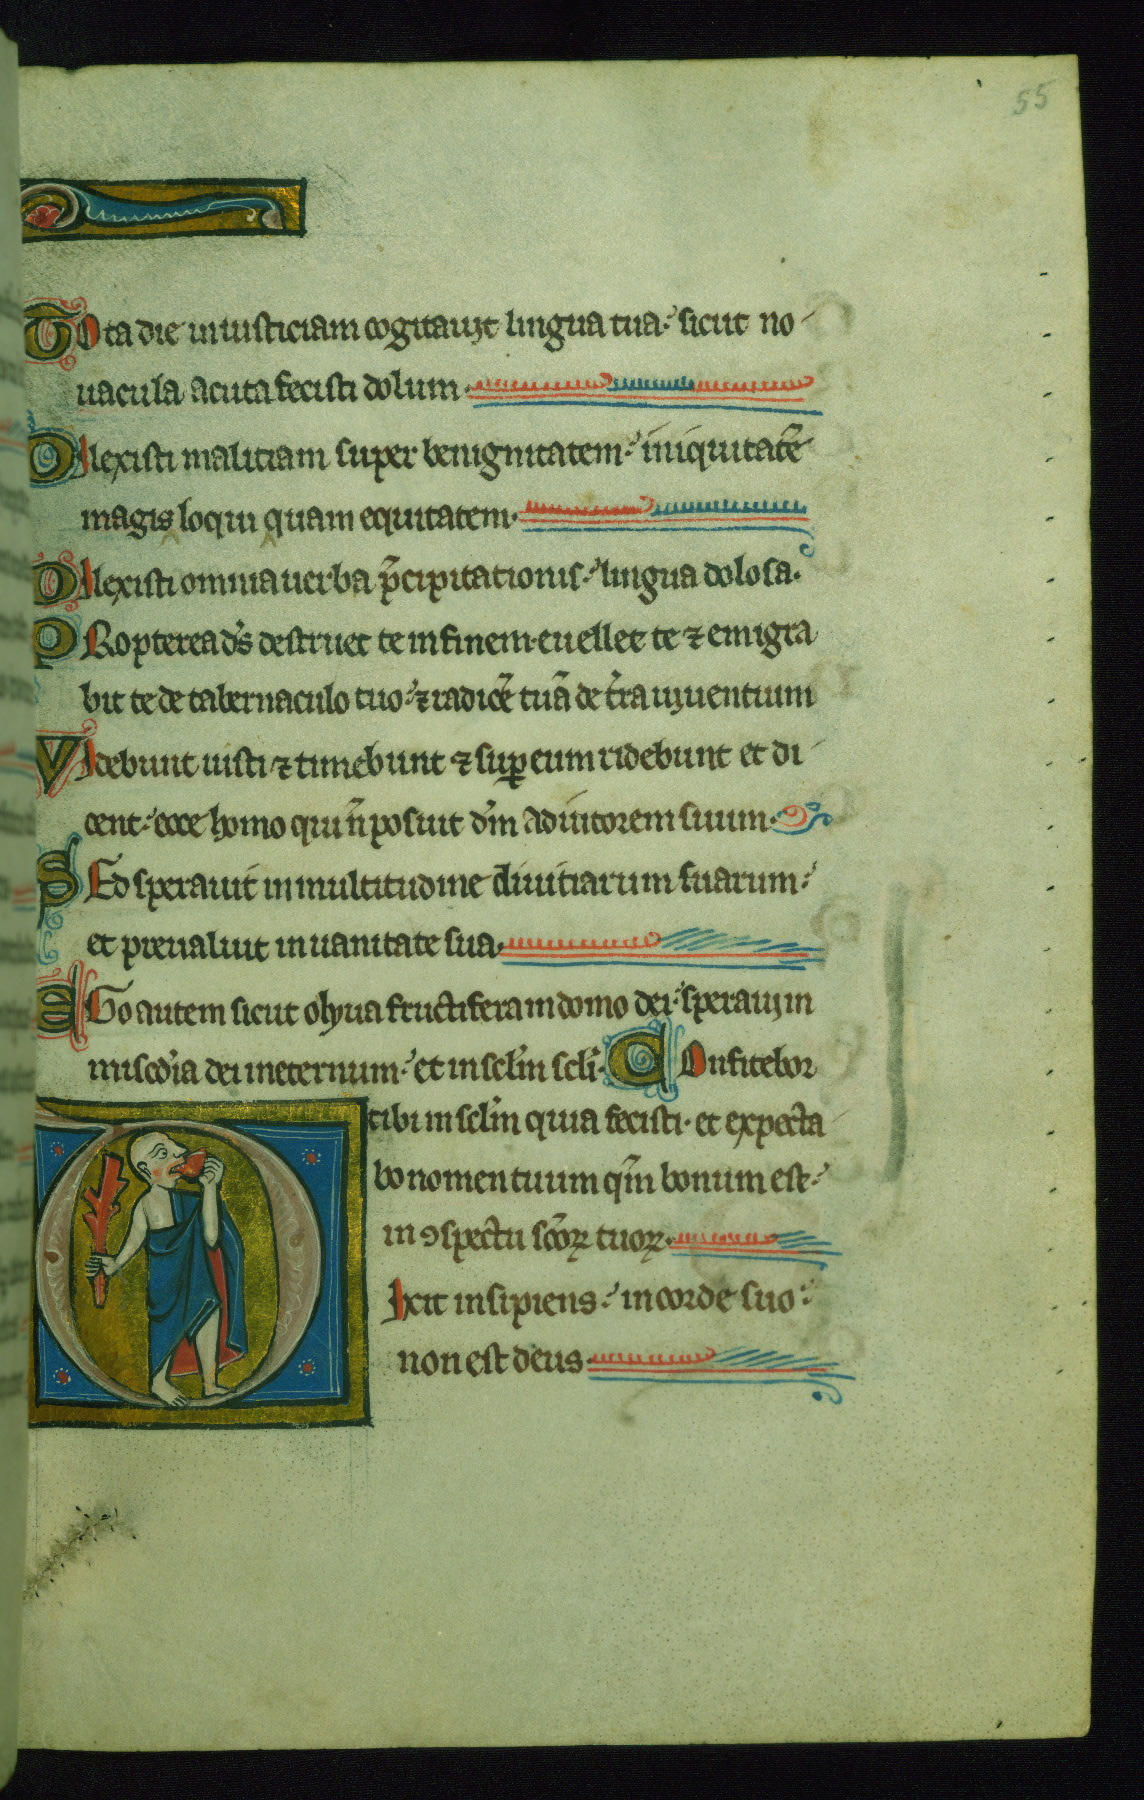 55
Tota die iniusticiam cogitauit lingua tua: sicut no
uacula acuta fecisti dolum.
Dilexisti maliciam super benignitatem: iniquitatē
magis loqui quam equitatem.
Dilexisti omnia uerba p̄cipitationis: lingua dolosa.
PRopterea d̄s destruet te in finem. euellet te ⁊ emigra
bit te de tabernaculo tuo: ⁊ radicē tuā de t̄ra uiuentium
Videbunt iusti ⁊ timebunt ⁊ sup eum ridebunt et di
cent: ecce homo qui n̄ posuit dn̄m adiutorem suum.
SEd sperauit in multitudine diuitiarum suarum:
et preualuit in uanitate sua.
EGo autem sicut olyua fructifera in domo dei: speraui in
misc̄dia dei in eternum: et in sclm̄ scli. Confitebor
tibi in sclm̄ quia fecisti. et expecta
bo nomen tuum qm̄ bonum est:
in ↄspectu sc̄oꝝ tuoꝝ.
Dixit insipiens: in corde suo:
non est deus